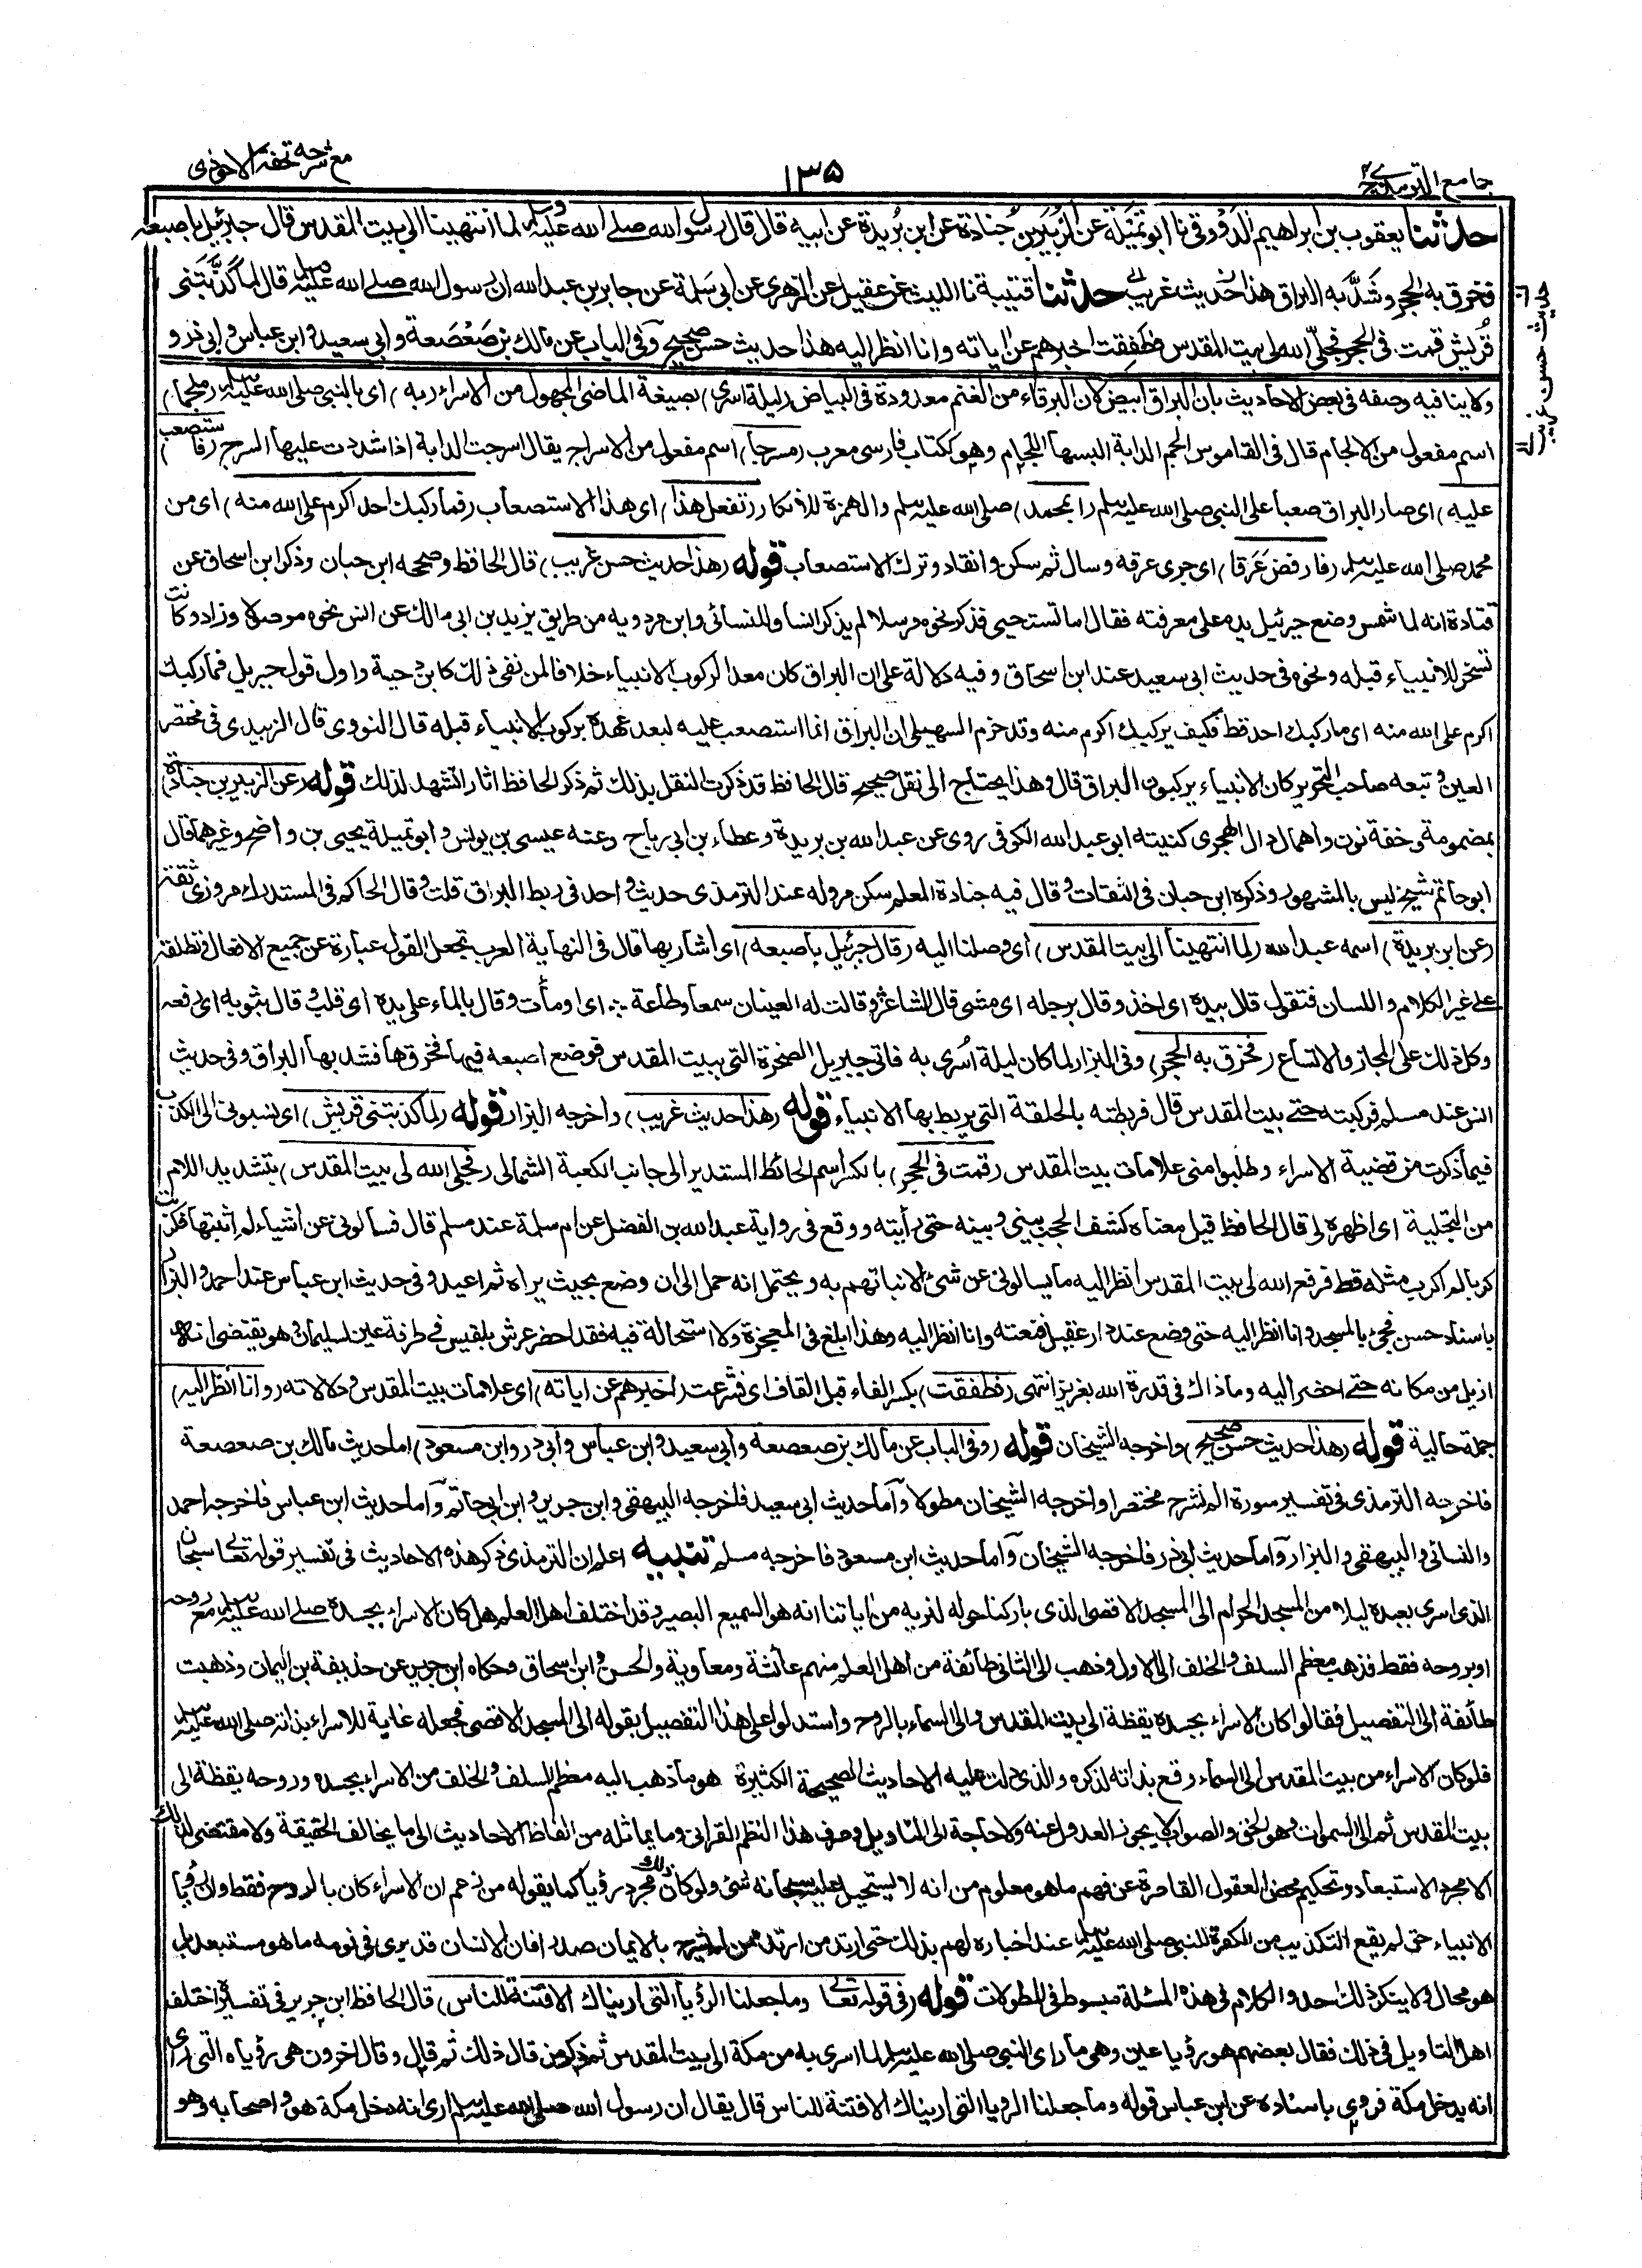 جامع الترمذي
١٣٥
مع شرحه تحفة الاحوذى
حدثنا يعقوب بن ابراهيم الدَّورقى نا ابو تُمَيلة عن الزُّبَير بن جُنادة عن ابن بُريدة عن ابيه قال قال رسول الله صلى الله عليه وسلم لما انتهينا الى بيت المقدس قال جبرئيل باصبعه
فخرق به الحجر وشَدَّ به البراق هذا حديث غريب حدثنا قتيبة نا الليث عن عقيل عن الزهرى عن ابى سَلمة عن جابر بن عبد الله ان رسول الله صلى الله عليه وسلم قال لما كذَّبَتنى
قُريش قمت فى الحجر فجلّى الله لى بيت المقدس فطَفِقت اخبرهم عن اياته وانا انظر اليه هذا حديث حسن صحيح وفى الباب عن مالك بن صَعْصَعة وابى سعيد وابن عباس وابى ذر و
حديث حسن غريب
ولا ينافيه وصفه فى بعض الاحاديث بان البراق ابيض لان البرقاء من الغنم معدودة فى البياض (ليلة اسرى) بصيغة الماضى المجهول من الاسراء (به) اى بالنبى صلى الله عليه وسلم (ملجما)
اسم مفعول من الالجام قال فى القاموس الجم الدابة البسها اللجام وهو ككتاب فارسى معرب (مسرجا) اسم مفعول من الاسراج يقال اسرجت الدابة اذا شددت عليها السرج (فاستصعب
عليه) اى صار البراق صعبا على النبى صلى الله عليه وسلم (ابمحمد) صلى الله عليه وسلم والهمزة للانكار (تفعل هذا) اى هذا الاستصعاب (فما ركبك احد اكرم على الله منه) اى من
محمد صلى الله عليه وسلم (فارفض عَرَقا) اى جرى عرقه وسال ثم سكن وانقاد وترك الاستصعاب قوله (هذا حديث حسن غريب) قال الحافظ وصححه ابن حبان وذكر ابن اسحاق عن
قتادة انه لما شمس وضع جبرئيل يده على معرفته فقال اما تستحيى فذكر نحوه مرسلا لم يذكر انسا وللنسائى وابن مردويه من طريق يزيد بن ابى مالك عن انس نحوه موصولا وزاد وكانت
تسخر للانبياء قبله ونحوه فى حديث ابى سعيد عند ابن اسحاق وفيه دلالة على ان البراق كان معدا لركوب الانبياء خلافا لمن نفى ذلك كابن دحية واول قول جبريل فما ركبك
اكرم على الله منه اى ما ركبك احد قط فكيف يركبك اكرم منه وقد جزم السهيلى ان البراق انما استصعب عليه لبعد عهده بركوب الانبياء قبله قال النووى قال الزبيدى فى مختصر
العين وتبعه صاحب التحرير كان الانبياء يركبون البراق قال وهذا يحتاج الى نقل صحيح قال الحافظ قد ذكرت النقل بذلك ثم ذكر الحافظ اثارا تشهد لذلك قوله (عن الزبير بن جنادة)
بمضمومة وخفة نون واهمال دال الهجرى كنيته ابو عبد الله الكوفى روى عن عبد الله بن بريدة وعطاء بن ابى رباح وعنه عيسى بن يونس وابو تميلة يحيى بن واضح وغيرهما قال
ابو حاتم شيخ ليس بالمشهور وذكره ابن حبان فى الثقات وقال فيه جنادة المعلم سكن مرو له عند الترمذى حديث واحد فى ربط البراق قلت وقال الحاكم فى المستدرك مروزى ثقة
(عن ابن بريدة) اسمه عبد الله (لما انتهينا الى بيت المقدس) اى وصلنا اليه (قال جبرئيل باصبعه) اى اشار بها قال فى النهاية العرب تجعل القول عبارة عن جميع الافعال وتطلقه
على غير الكلام واللسان فتقول قال بيده اى اخذ وقال برجله اى مشى قال الشاعر وقالت له العينان سمعا وطاعة ؞ اى اومأت وقال بالماء على يده اى قلب وقال بثوبه اى رفعه
وكل ذلك على المجاز والاتساع (فخرق به الحجر) وفى البزار لما كان ليلة اسرى به فاتى جبريل الصخرة التى ببيت المقدس فوضع اصبعه فيها فخرقها فشد بها البراق وفى حديث
انس عند مسلم فركبته حتى بيت المقدس قال فربطته بالحلقة التى يربط بها الانبياء قوله (هذا حديث غريب) واخرجه البزار قوله (لما كذبتنى قريش) اى نسبونى الى الكذب
فيما ذكرت من قضية الاسراء وطلبوا منى علامات بيت المقدس (قمت فى الحجر) بالكسر اسم الحائط المستدير الى جانب الكعبة الشمالى (فجلى الله لى بيت المقدس) بتشديد اللام
من التجلية اى اظهره لى قال الحافظ قيل معناه كشف الحجب بينى وبينه حتى رأيته ووقع فى رواية عبد الله بن الفضل عن ام سلمة عند مسلم قال فسالونى عن اشياء لم اثبتها فكربت
كربا لم اكرب مثله قط فرفع الله لى بيت المقدس انظر اليه ما يسالونى عن شئ الا نباتهم به ويحتمل انه حمل الى ان وضع بحيث يراه ثم اعيد وفى حديث ابن عباس عند احمد والبزار
باسناد حسن فجئ بالمسجد وانا انظر اليه حتى وضع عند دار عقيل فنعته وانا انظر اليه وهذا ابلغ فى المعجزة ولا استحالة فيه فقد احضر عرش بلقيس فى طرفة عين لسليمان وهو يقتضى انه
ازيل من مكانه حتى احضر اليه وما ذاك فى قدرة الله بعزيز انتهى (فطفقت) بكسر الفاء قبل القاف اى شرعت (اخبرهم عن اياته) اى علامات بيت المقدس ودلالاته (وانا انظر اليه)
جملة حالية قوله (هذا حديث حسن صحيح) واخرجه الشيخان قوله (وفى الباب عن مالك بن صعصعة وابى سعيد وابن عباس وابى ذر وابن مسعود) اما حديث مالك بن صعصعة
فاخرجه الترمذى فى تفسير سورة الم نشرح مختصرا واخرجه الشيخان مطولا واما حديث ابى سعيد فاخرجه البيهقى وابن جرير وابن ابى حاتم واما حديث ابن عباس فاخرجه احمد
والنسائى والبيهقى والبزار واما حديث ابى ذر فاخرجه الشيخان واما حديث ابن مسعود فاخرجه مسلم تنبيه اعلم ان الترمذى ذكر هذه الاحاديث فى تفسير قوله تعالى سبحان
الذى اسرى بعبده ليلا من المسجد الحرام الى المسجد الاقصى الذى باركنا حوله لنريه من اياتنا انه هو السميع البصير وقد اختلف اهل العلم هل كان الاسراء بجسده صلى الله عليه وسلم مع روحه
او بروحه فقط فذهب معظم السلف والخلف الى الاول وذهب الى الثانى طائفة من اهل العلم منهم عائشة ومعاوية والحسن وابن اسحاق وحكاه ابن جرير عن حذيفة بن اليمان وذهبت
طائفة الى التفصيل فقالوا كان الاسراء بجسده يقظة الى بيت المقدس والى السماء بالروح واستدلوا على هذا التفصيل بقوله الى المسجد الاقصى فجعله غاية للاسراء بذاته صلى الله عليه وسلم
فلو كان الاسراء من بيت المقدس الى السماء وقع بذاته لذكره والذى دلت عليه الاحاديث الصحيحة الكثيرة هو ما ذهب اليه معظم السلف والخلف من الاسراء بجسده وروحه يقظة الى
بيت المقدس ثم الى السموات وهو الحق والصواب لا يجوز العدول عنه ولا حاجة الى التاويل وصرف هذا النظم القرانى وما يماثله من الفاظ الاحاديث الى ما يخالف الحقيقة ولا مقتضى لذلك
الا مجرد الاستبعاد وتحكيم محض العقول القاصرة عن فهم ما هو معلوم من انه لا يستحيل عليه سبحانه شئ ولو كان ذلك مجرد رؤيا كما يقوله من زعم ان الاسراء كان بالروح فقط وان رؤيا
الانبياء حق لم يقع التكذيب من الكفرة للنبى صلى الله عليه وسلم عند اخباره لهم بذلك حتى ارتد من ارتد ممن لم يشرح بالايمان صدرا فان الانسان قد يرى فى نومه ما هو مستبعد بل
هو محال ولا ينكر ذلك احد والكلام فى هذه المسئلة مبسوط فى المطولات قوله (فى قوله تعالى وما جعلنا الرؤيا التى اريناك الا فتنة للناس) قال الحافظ ابن جرير فى تفسيره اختلف
اهل التاويل فى ذلك فقال بعضهم هو رؤيا عين وهى ما راى النبى صلى الله عليه وسلم لما اسرى به من مكة الى بيت المقدس ثم ذكر من قال ذلك ثم قال وقال اخرون هى رؤياه التى راى
انه يدخل مكة فروى باسناده عن ابن عباس قوله وما جعلنا الرويا التى اريناك الا فتنة للناس قال يقال ان رسول الله صلى الله عليه وسلم ارى انه دخل مكة هو واصحابه وهو